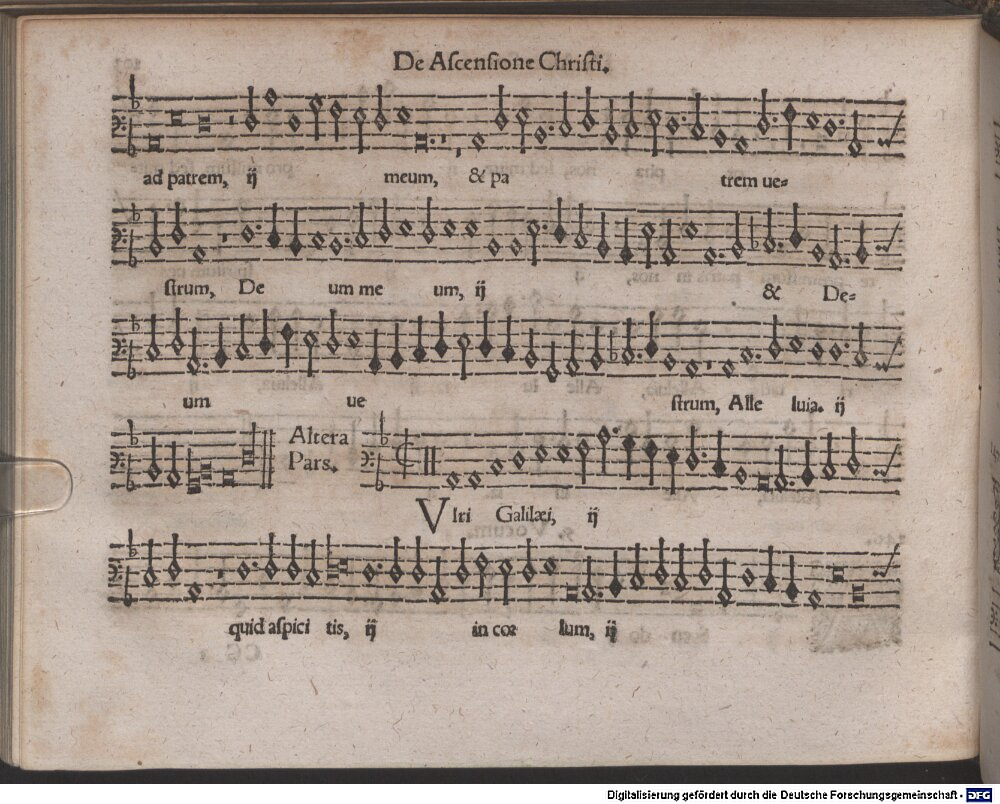 De Ascensione Christi.
ad patrem, ij meum, & pa trem ue-
strum, De um me um, ij & De-
um ue strum, Alle luia. ij
Altera
Pars.
VIri Galilæi, ij
quid aspici tis, ij in cœ lum, ij
Digitalisierung gefördert durch die Deutsche Forschungsgemeinschaft - DFG